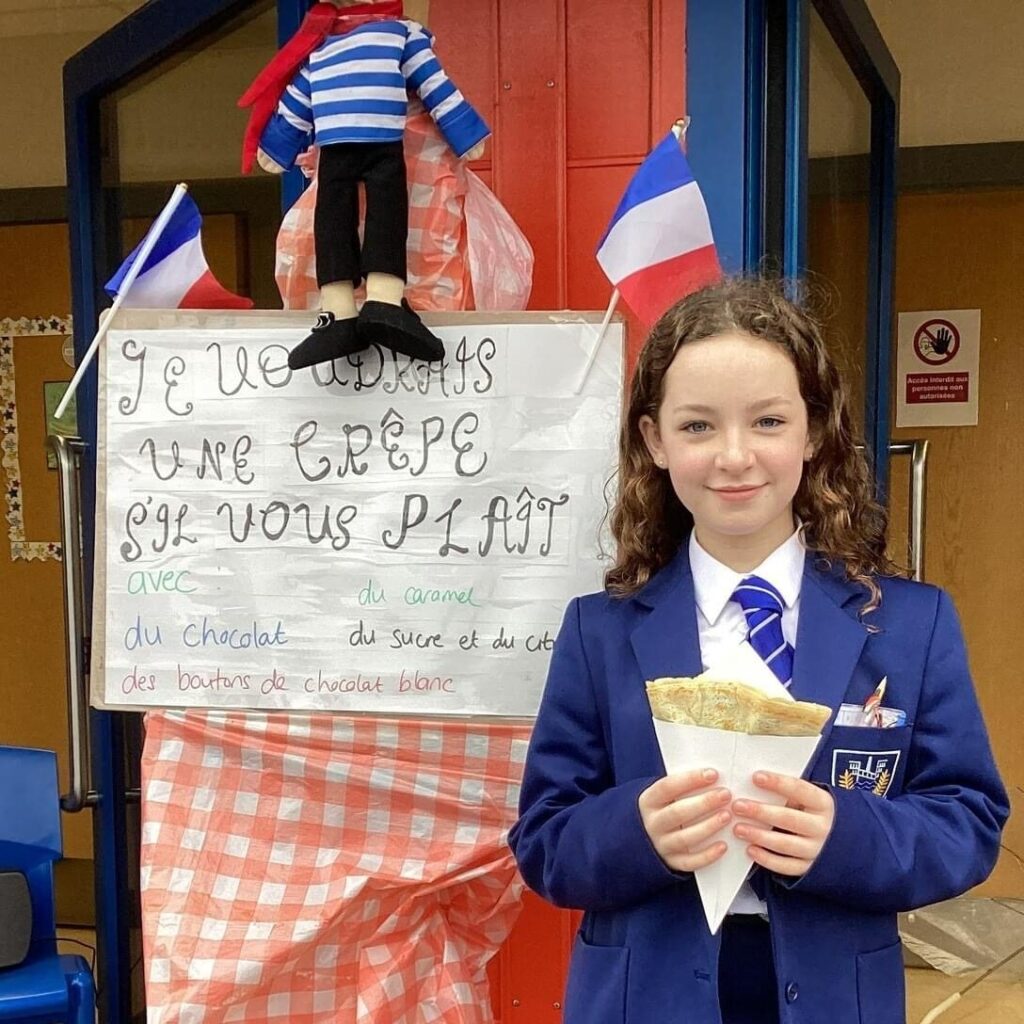 JE VOUDRAIS
UNE CRÊPE
S'IL VOUS PLAÎT
avec
du caramel
du chocolat
du sucre et du
des boutons de chocolat blanc
Accès interdit aux
personnes non
autorisées